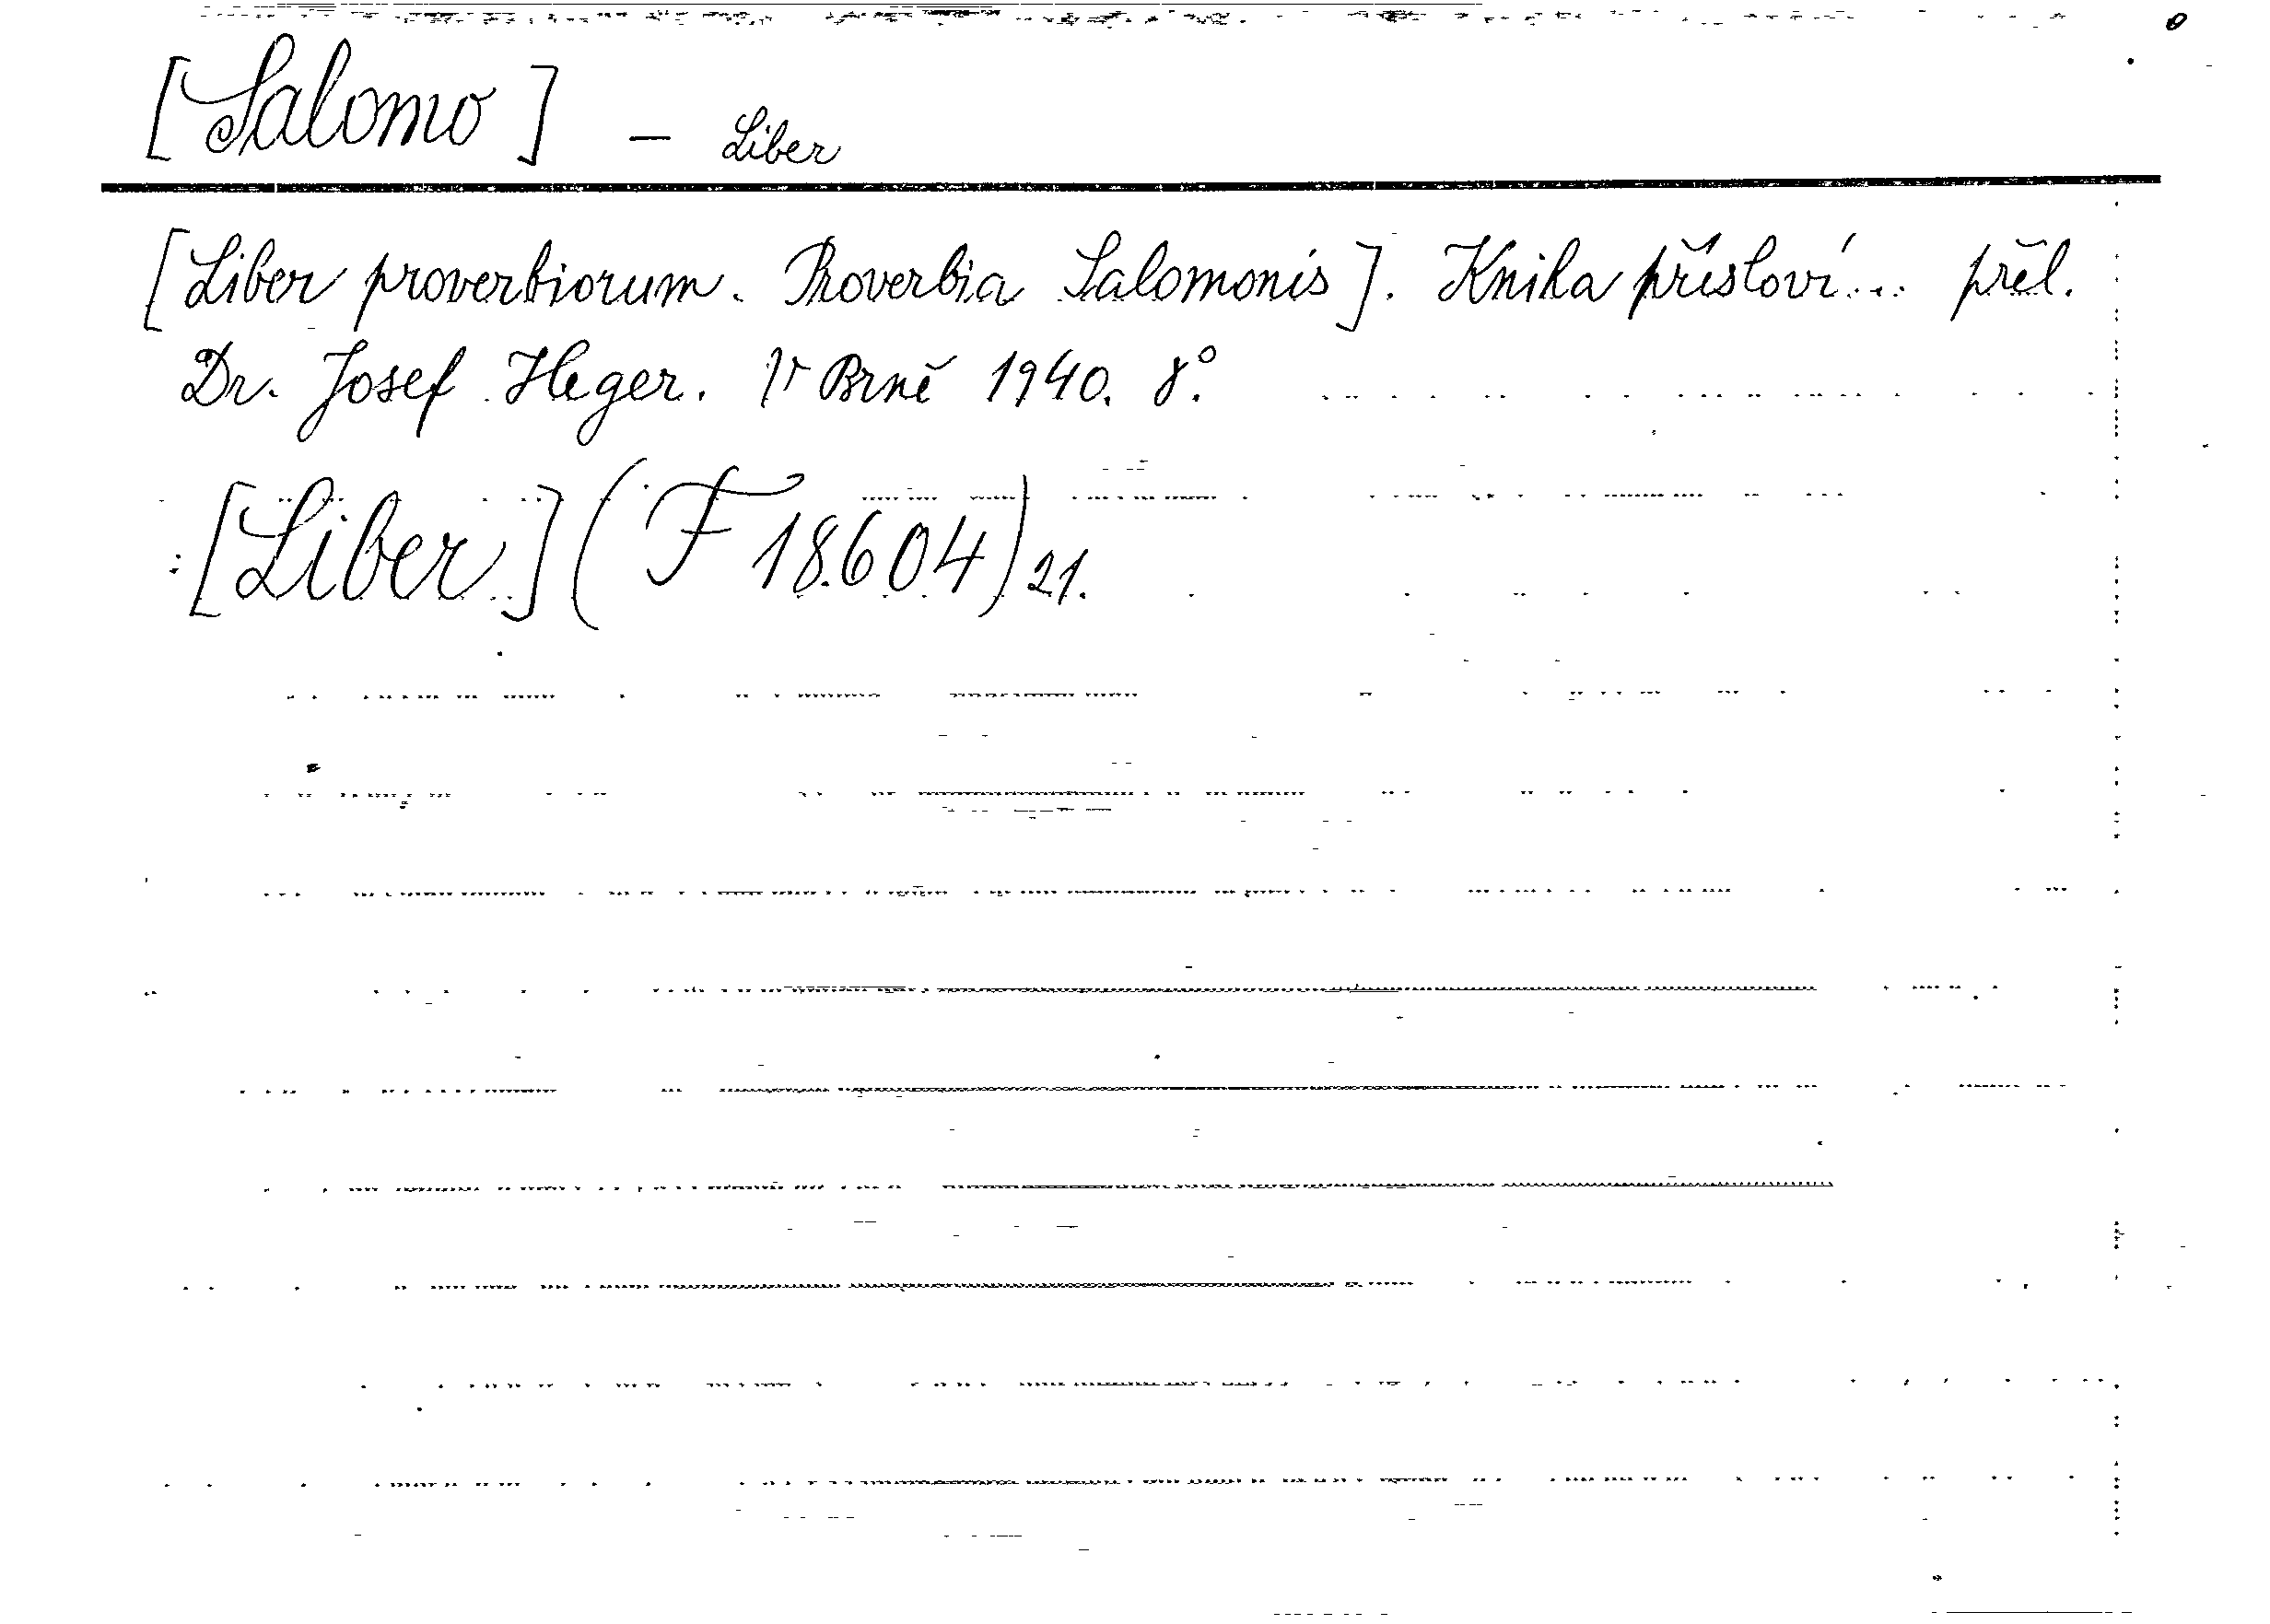 [Salomo] – Liber
[Liber proverbiorum. Proverbia Salomonis]. Kniha přísloví... přel.
Dr. Josef Heger. V Brně 1940. 8°.
[Liber] (F 18.604) 21.